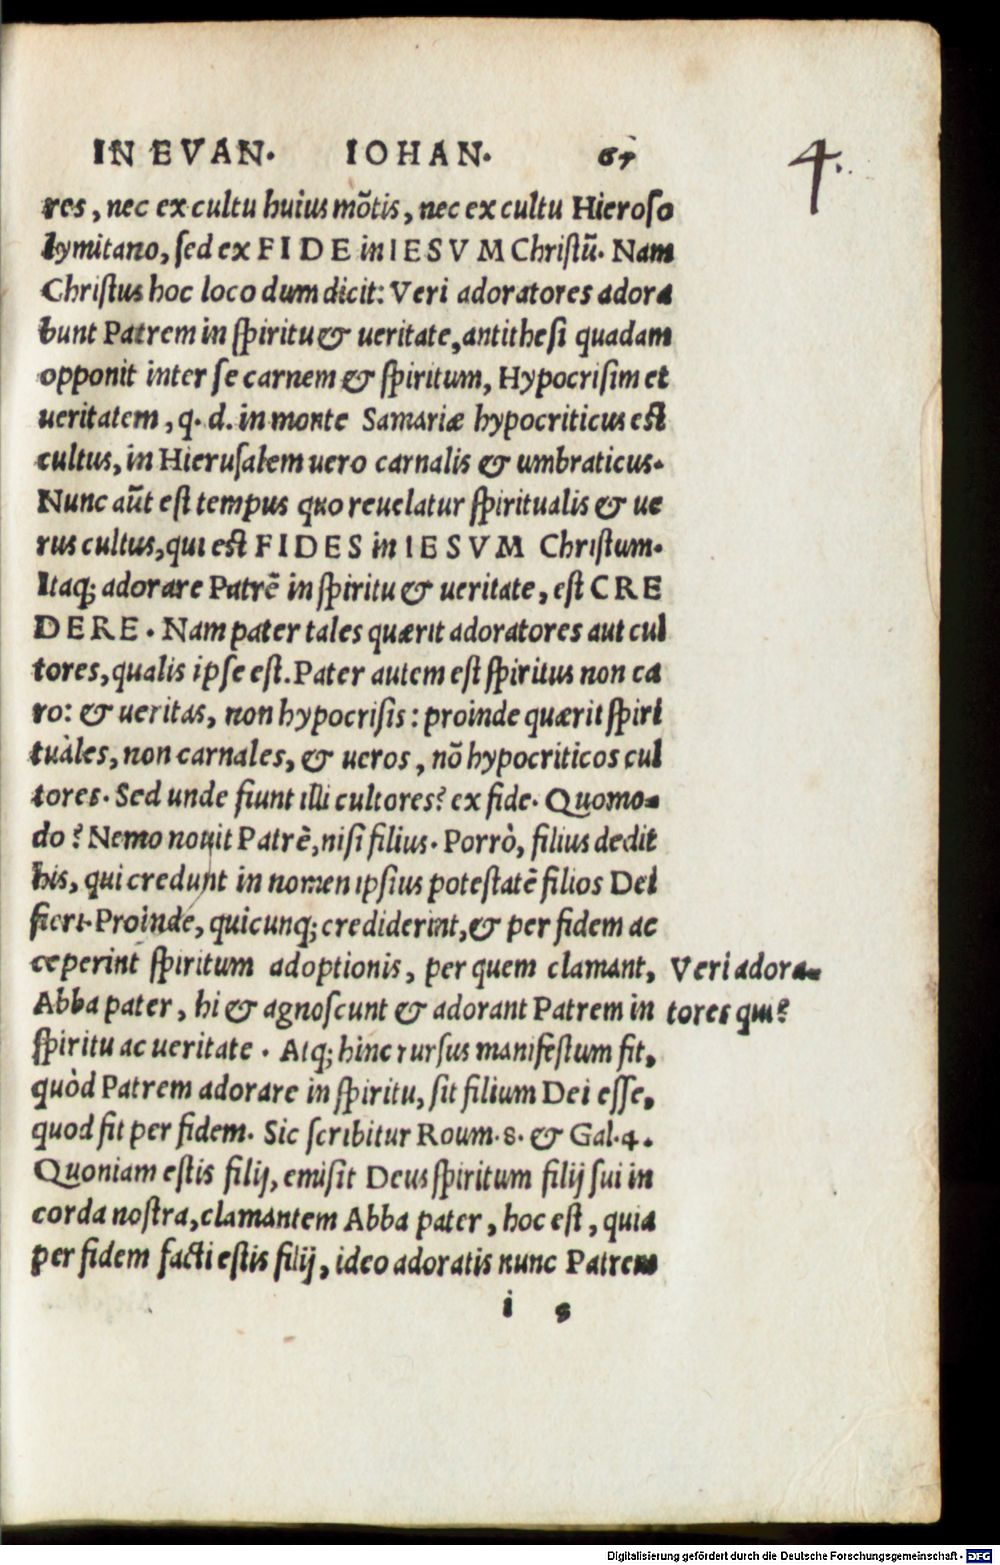 IN EVAN. IOHAN. 67
4.
res, nec ex cultu huius mõtis, nec ex cultu Hieroso
lymitano, sed ex FIDE in IESVM Christũ. Nam
Christus hoc loco dum dicit: Veri adoratores adora
bunt Patrem in spiritu & ueritate, antithesi quadam
opponit inter se carnem & spiritum, Hypocrisim et
ueritatem, q. d. in monte Samariæ hypocriticus est
cultus, in Hierusalem uero carnalis & umbraticus.
Nunc aũt est tempus quo reuelatur spiritualis & ue
rus cultus, qui est FIDES in IESVM Christum.
Itaq; adorare Patrẽ in spiritu & ueritate, est CRE
DERE. Nam pater tales quærit adoratores aut cul
tores, qualis ipse est. Pater autem est spiritus non ca
ro: & ueritas, non hypocrisis: proinde quærit spiri
tuales, non carnales, & ueros, nõ hypocriticos cul
tores. Sed unde fiunt illi cultores? ex fide. Quomo-
do? Nemo nouit Patrẽ, nisi filius. Porrò, filius dedit
his, qui credunt in nomen ipsius potestatẽ filios Dei
fieri. Proinde, quicunq; crediderint, & per fidem ac
ceperint spiritum adoptionis, per quem clamant,
Abba pater, hi & agnoscunt & adorant Patrem in
spiritu ac ueritate. Atq; hinc rursus manifestum fit,
quòd Patrem adorare in spiritu, sit filium Dei esse,
quod fit per fidem. Sic scribitur Roum. 8. & Gal. 4.
Quoniam estis filij, emisit Deus spiritum filij sui in
corda nostra, clamantem Abba pater, hoc est, quia
per fidem facti estis filij, ideo adoratis nunc Patrem
Veri adora-
tores qui?
i s
Digitalisierung gefördert durch die Deutsche Forschungsgemeinschaft - DFG